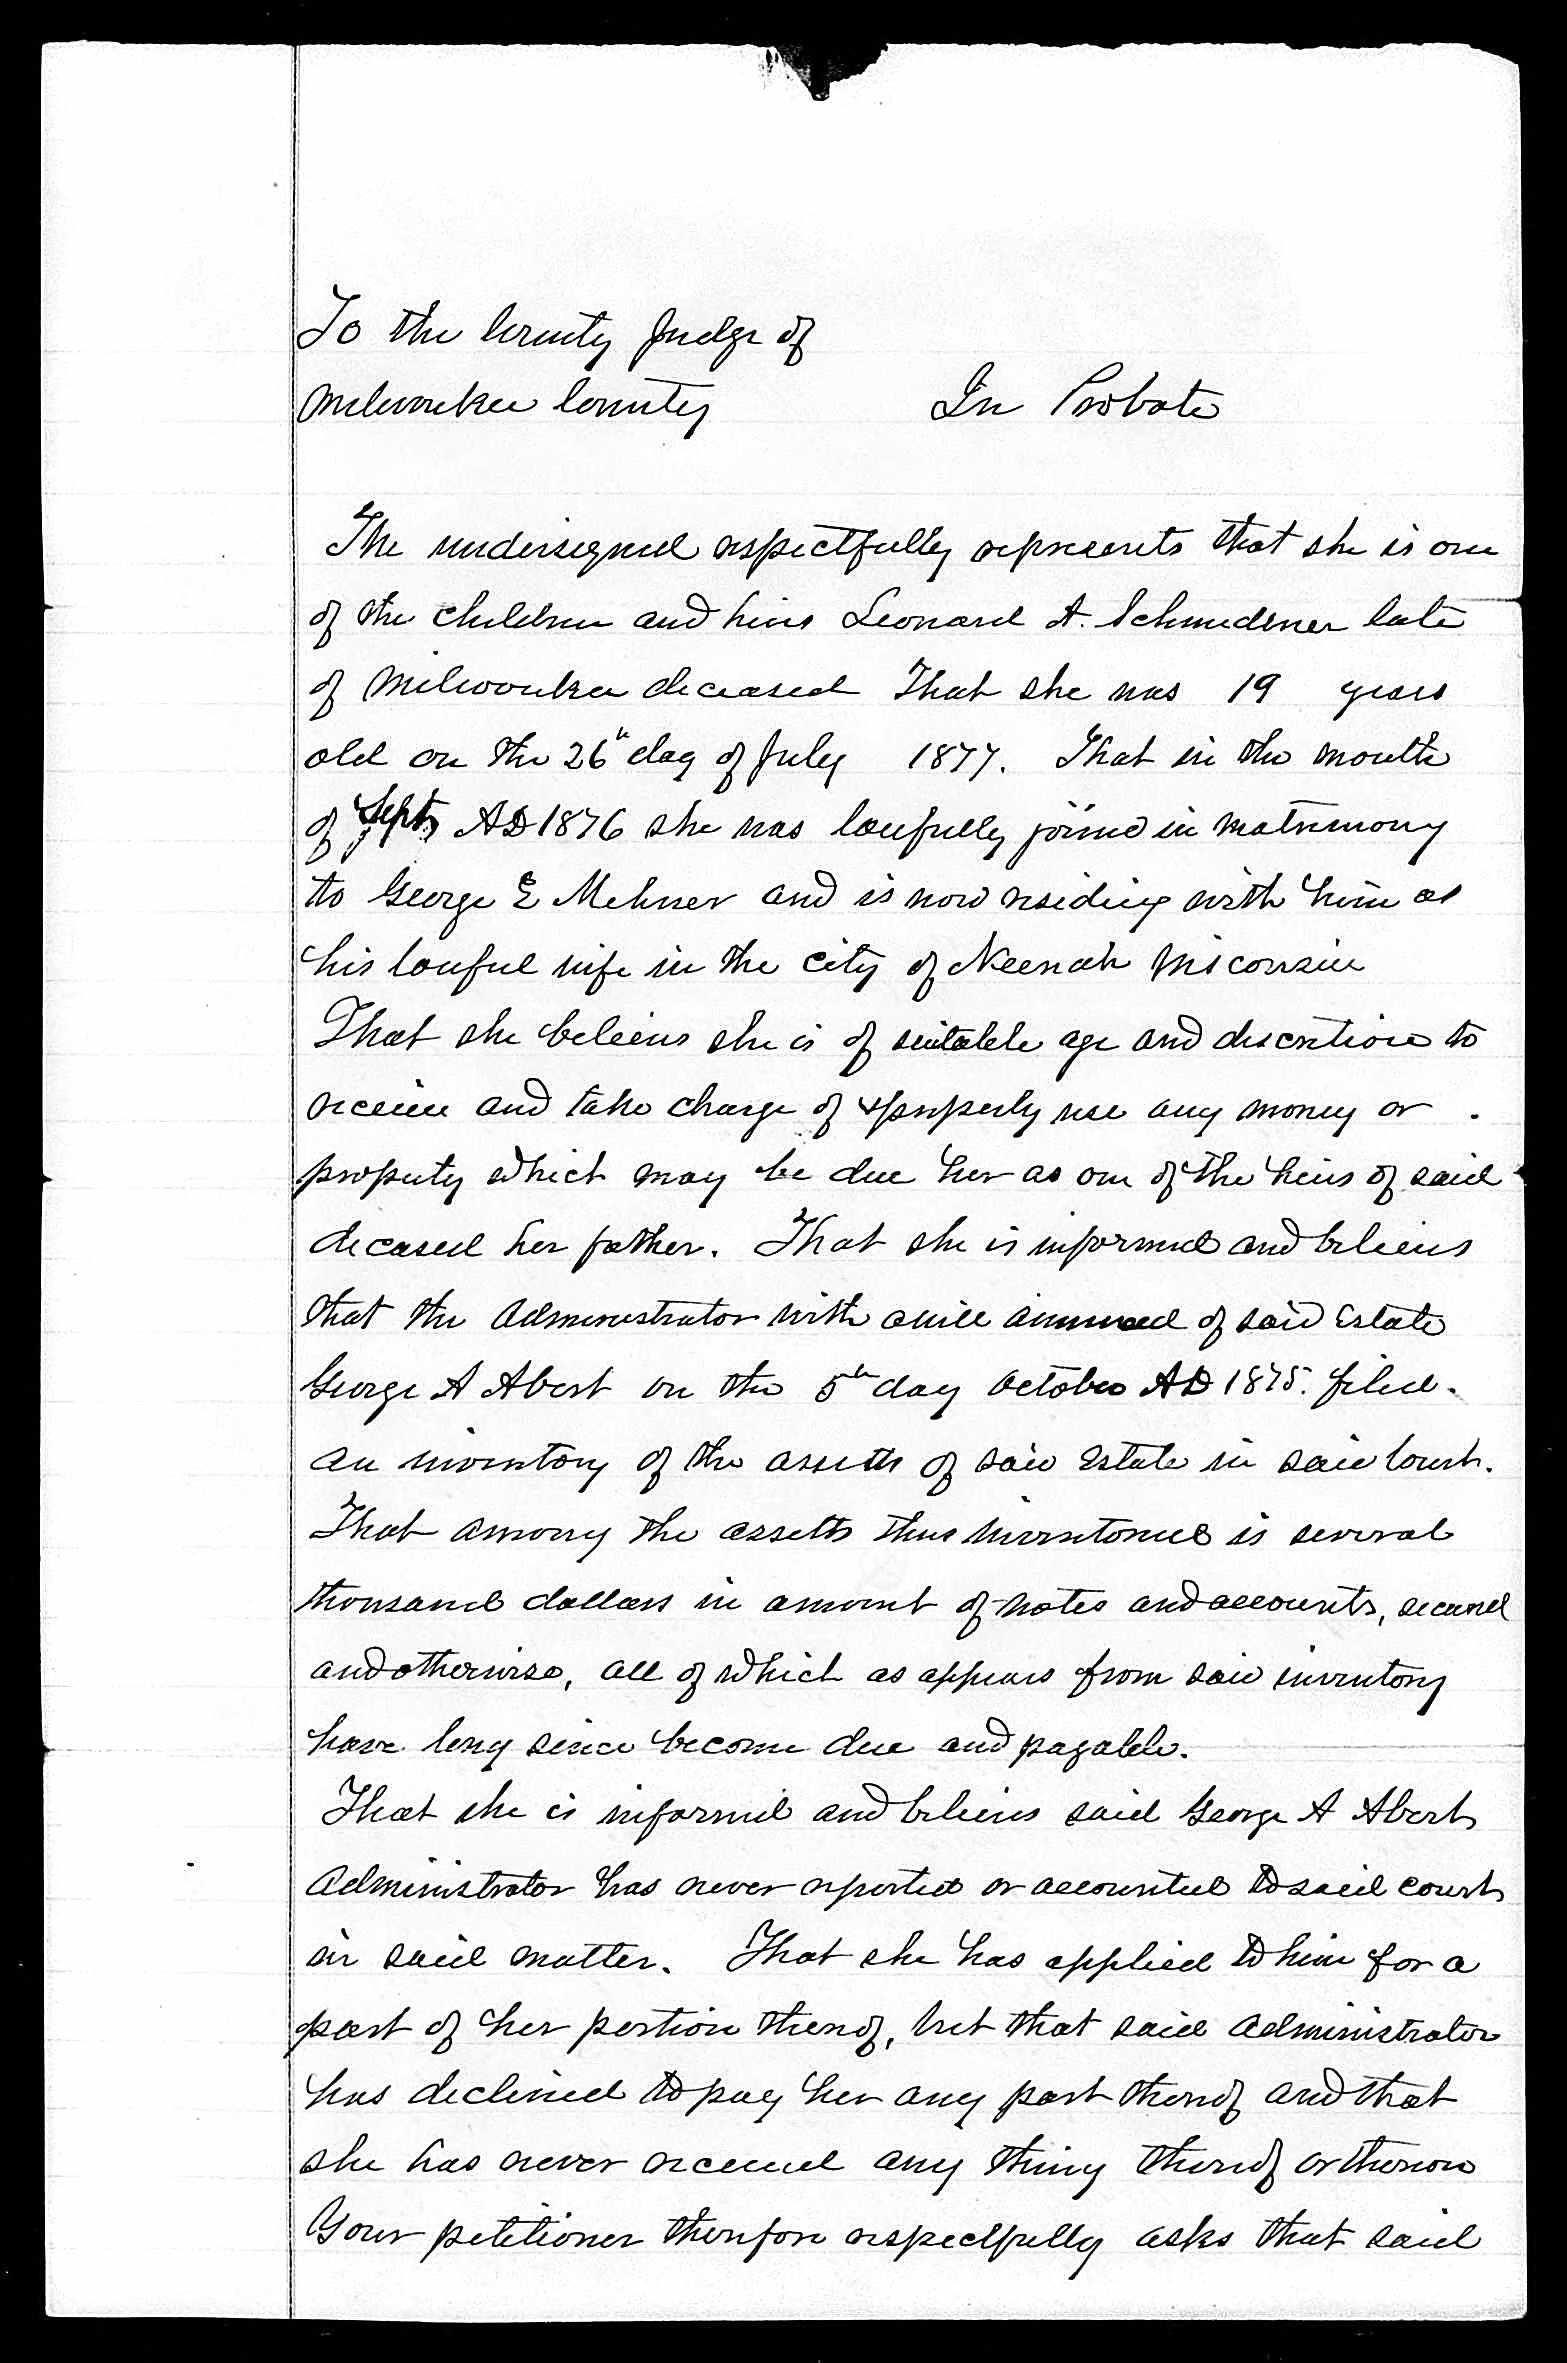 To the County Judge of
Milwaukee County In Probate
The undersigned respectfully represents that she is one
of the children and heirs Leonard A. Schmidtner late
of Milwaukee deceased That she was 19 years
old on the 26th day of July 1877. That in the month
of Sept, AD 1876 she was lawfully joined in matrimony
to George E Mehner and is now residing with him as
his lawful wife in the city of Neenah Wisconsin
That she believes she is of suitable age and discretion to
receive and take charge of & properly use any money or
property which may be due her as one of the heirs of said
deceased her father. That she is informed and believes
that the Administrator with a will annexed of said Estate
George A Abert on the 5th day October AD 1875. filed.
an inventory of the assetts of said Estate in said Court.
That among the assetts thus inventoried is several
thousand dollars in amount of notes and accounts, secured
and otherwise, all of which as appears from said inventory
have long since become due and payable.
That she is informed and believes said George A Abert
Administrator has never reported or accounted to said court
in said matter. That she has applied to him for a
part of her portion thereof, but that said Administrator
has declined to pay her any part thereof and that
she has never received any thing thereof or thereon
Your petitioner therefore respectfully asks that said